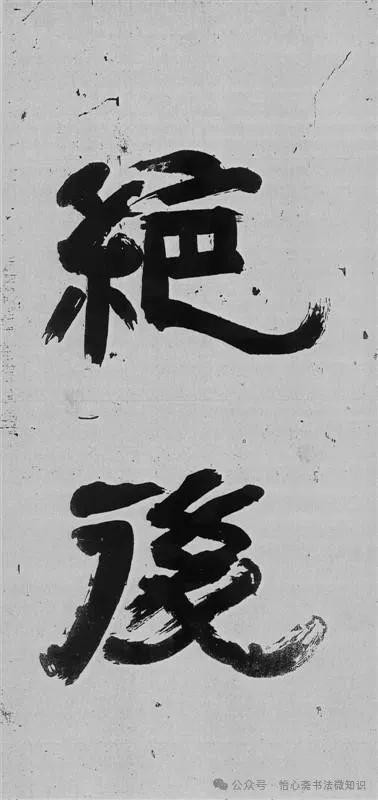 絕
後
公众号 · 怡心斋书法微知识